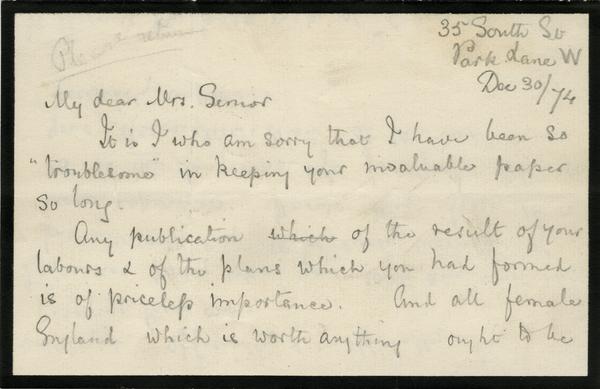 Please return
35 South St
Park Lane W
Dec 30/74
My dear Mrs. Senior
It is I who am sorry that I have been so
"troublesome" in keeping your invaluable paper
so long.
Any publication which of the result of your
labours & of the plans which you had formed
is of priceless importance. And all female
England which is worth anything ought to be